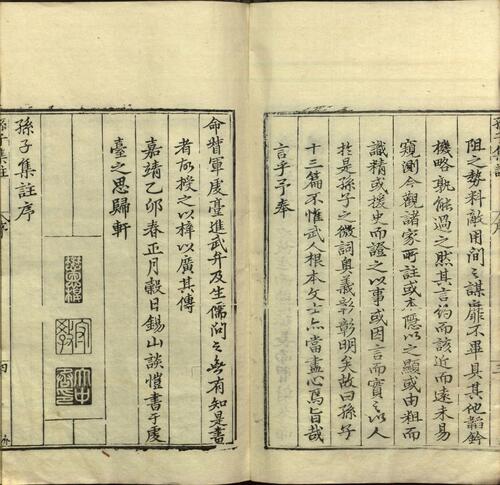 阻之勢料敵用間之謀靡不畢具其他韜鈐
機略孰能過之然其言約而該近而遠未易
窺測今觀諸家所註或本隱以之顯或由粗而
識精或援史而證之以事或因言而實之以人
於是孫子之微詞奧義彰彰明矣故曰孫子
十三篇不惟武人根本文士亦當盡心焉旨哉
言乎予奉
命督軍虔臺進武弁及生儒問之無有知是書
者故授之以梓以廣其傳
嘉靖乙卯春正月穀日錫山談愷書于虔
臺之思歸軒
孫子集註序
孫子集註
序
四